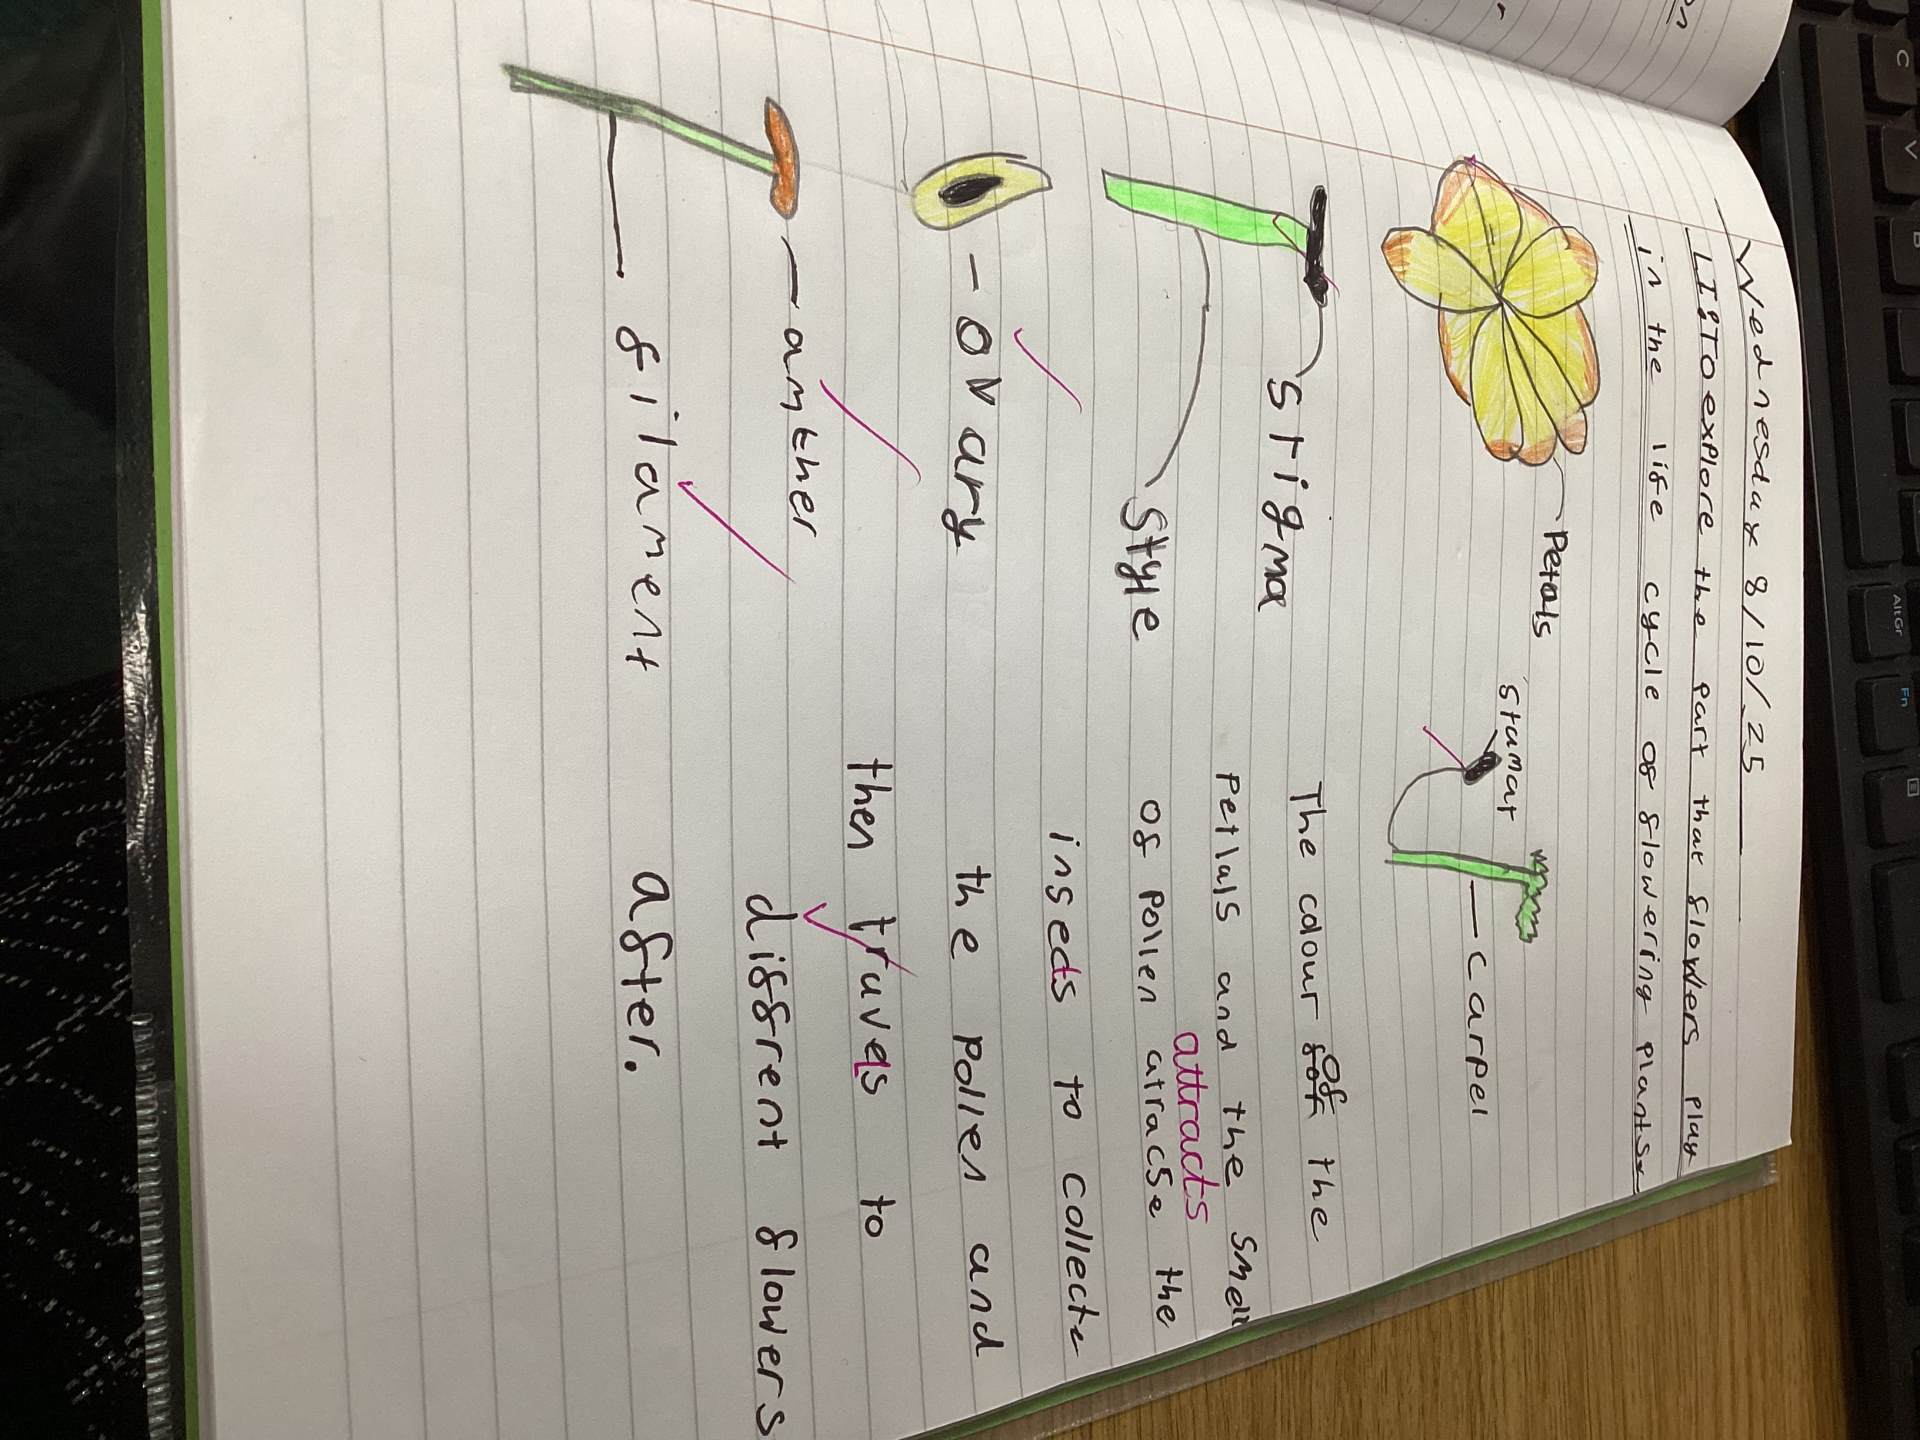 Wednesday 8/10/25
LI: To explore the part that flowers play
in the life cycle of flowering plants.
Petals
stamar
carpel
Stigma
Style
ovary
anther
filament
The colour of the
petlals and the smell
attracts
of pollen atracse the
insects to collect
the pollen and
then travels to
diffrent flowers
after.
C
V
B
Alt Gr
Fn